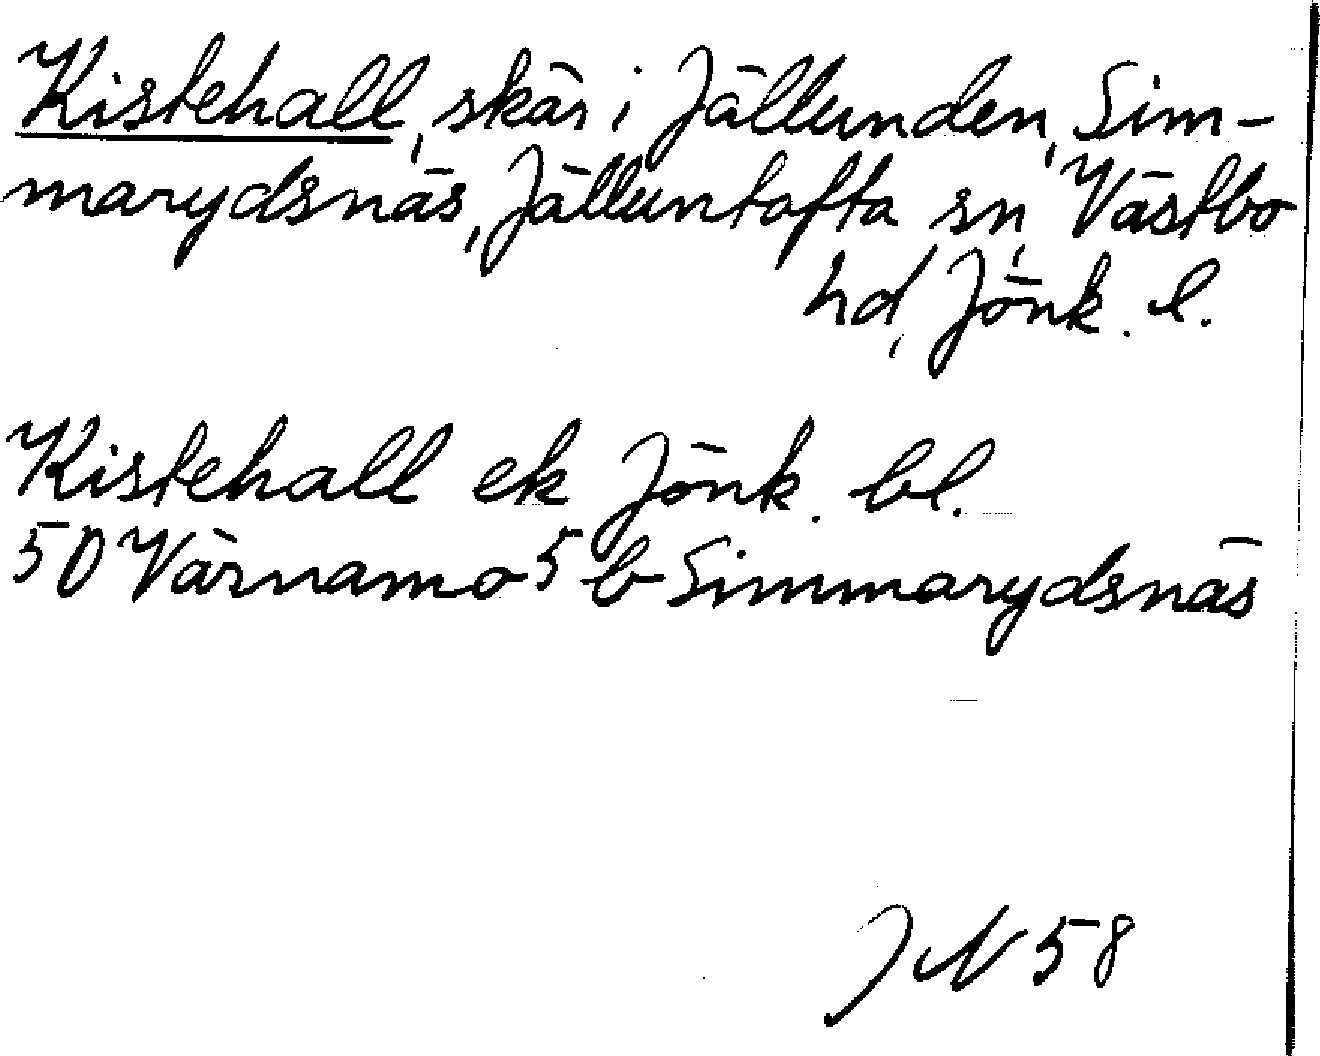 Kistehall, skär i Jällunden, Sim-
marydsnäs, Jälluntofta sn, Västbo
hd, Jönk. l.
Kistehall ek Jönk. bl.
50 Värnamo 5 b Simmarydsnäs
JN 58